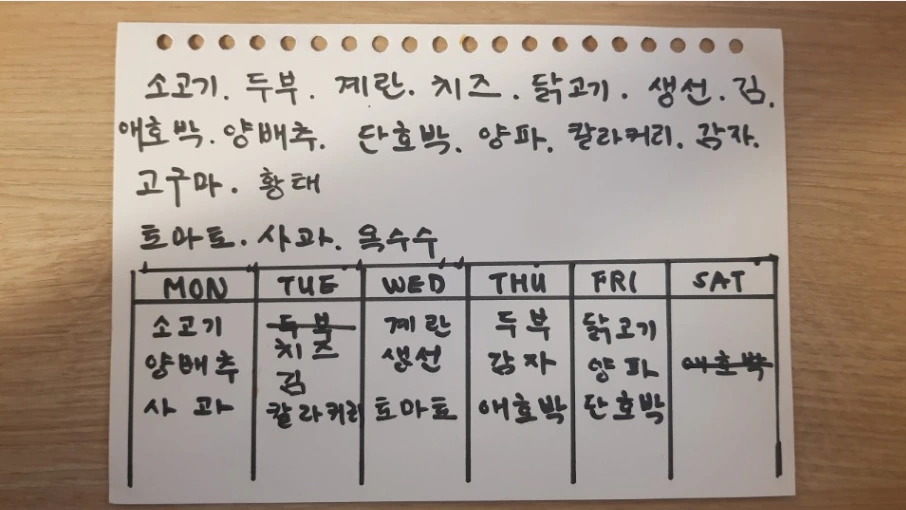 소고기. 두부. 계란. 치즈. 닭고기. 생선. 김.
애호박. 양배추. 단호박. 양파. 칼라커리. 감자.
고구마. 황태
토마토. 사과. 옥수수
MON TUE WED THU FRI SAT
소고기 두부 계란 두부 닭고기
치즈
양배추 김 생선 감자 양파 애호박
사과 칼라커리 토마토 애호박 단호박